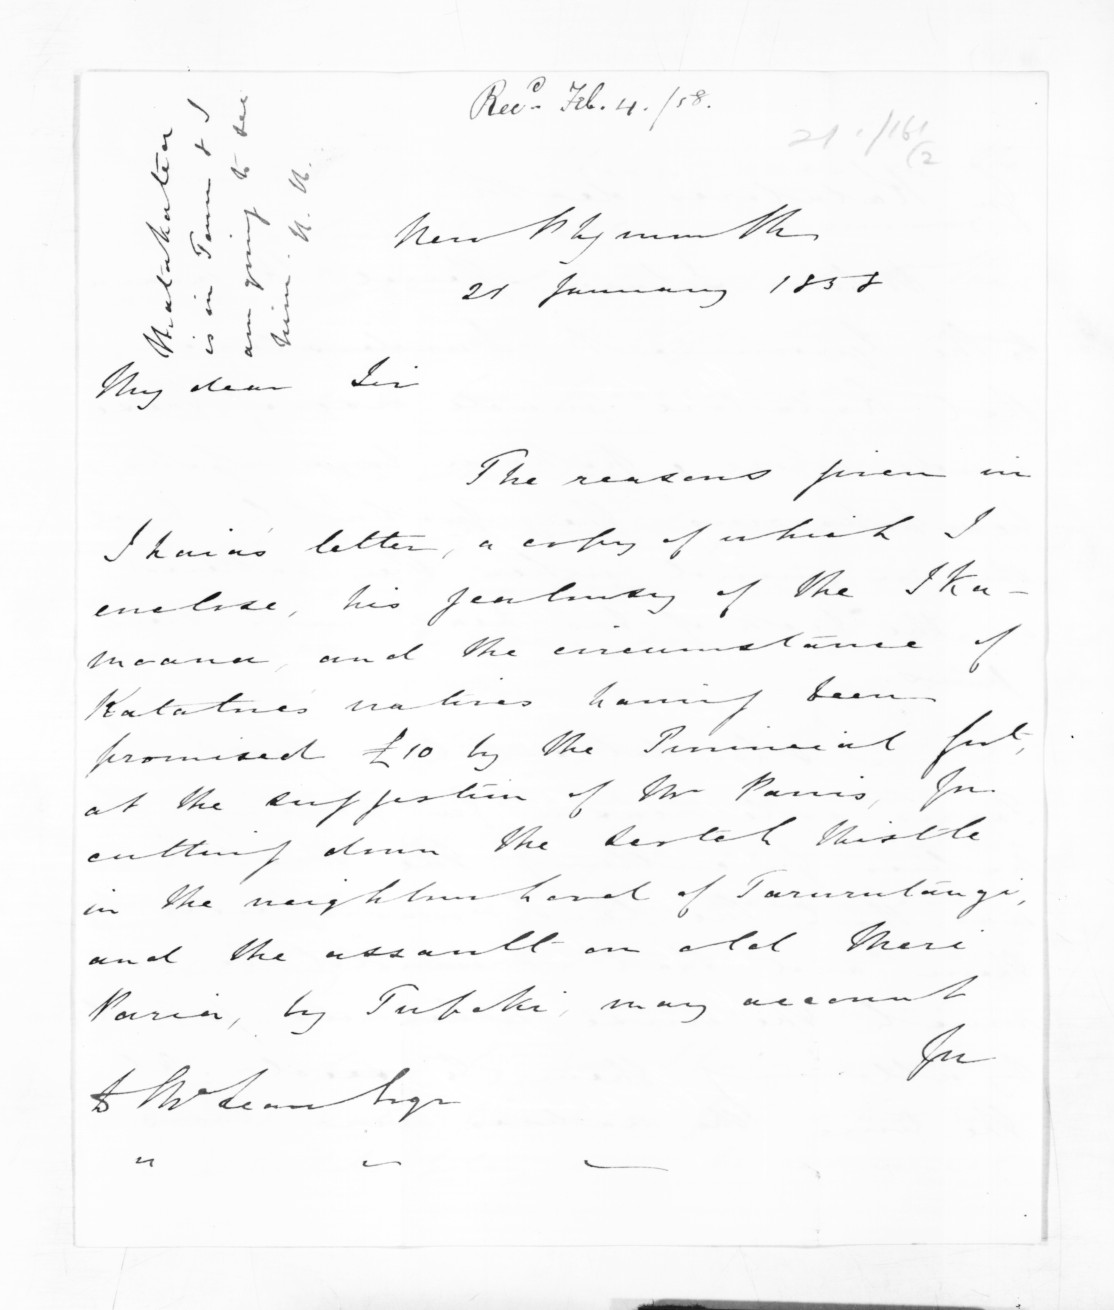 Recd. Feb. 4./58.
21./161
(2
Matakatea
is in Town & I
am going to see
him. H. H.
New Plymouth
21 January 1858
My dear Sir
The reasons given in
Ihaia's letter, a copy of which I
enclose, his jealousy of the Ika-
moana, and the circumstance of
Katatore's natives having been
promised £10 by the Provincial Govt,
at the suggestion of Mr Parris, for
cutting down the Scotch thistle
in the neighbourhood of Tarurutangi,
and the assault on old Meri
Paria, by Tupoki, may account
for
D McLean Esqr
" " —